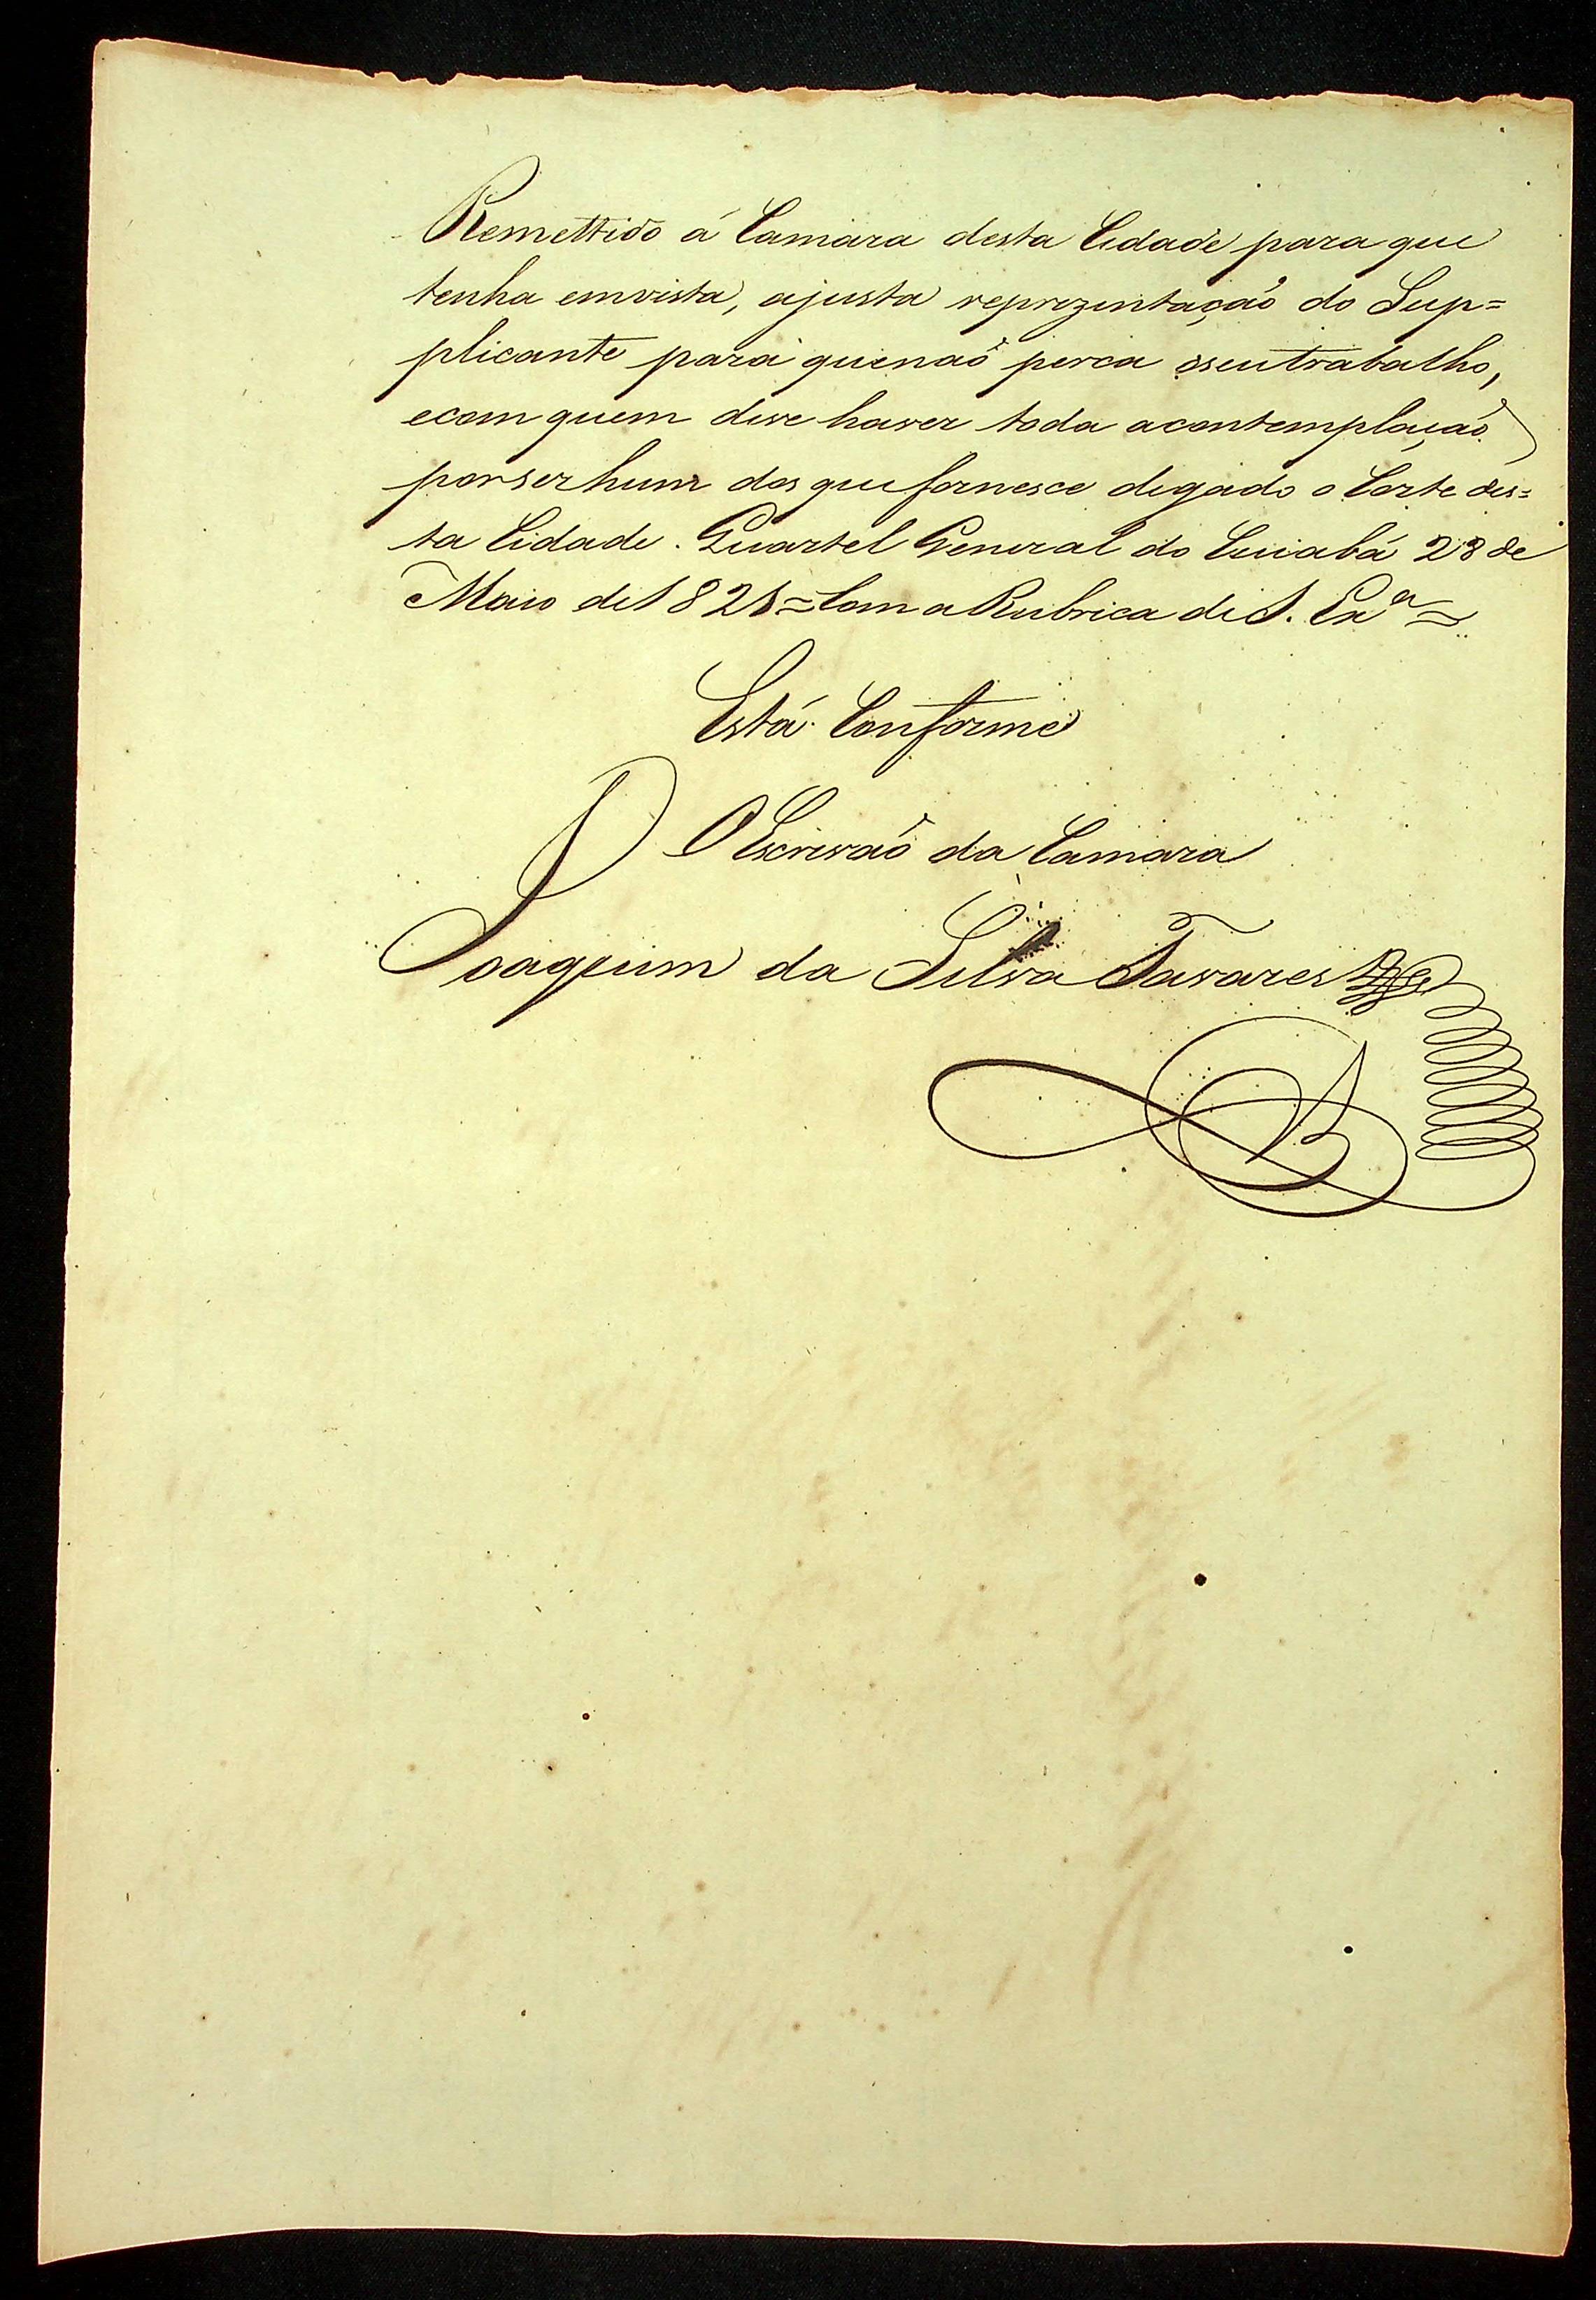 Remettido á Camara desta Cidade para que
tenha emvista, ajusta reprezentação do Sup=
plicante para quenaõ perca oseutrabalho,
ecom quem deve haver toda acontemplaçaõ
porser hum dos que fornesce degado o Corte des=
ta Cidade. Quartel General do Cuiabá 28 de
Maio de 182 = Com a Rubrica de S. Exª =
Está Conforme
O Escrivaõ da Camara
Joaquim da Silva Tavares